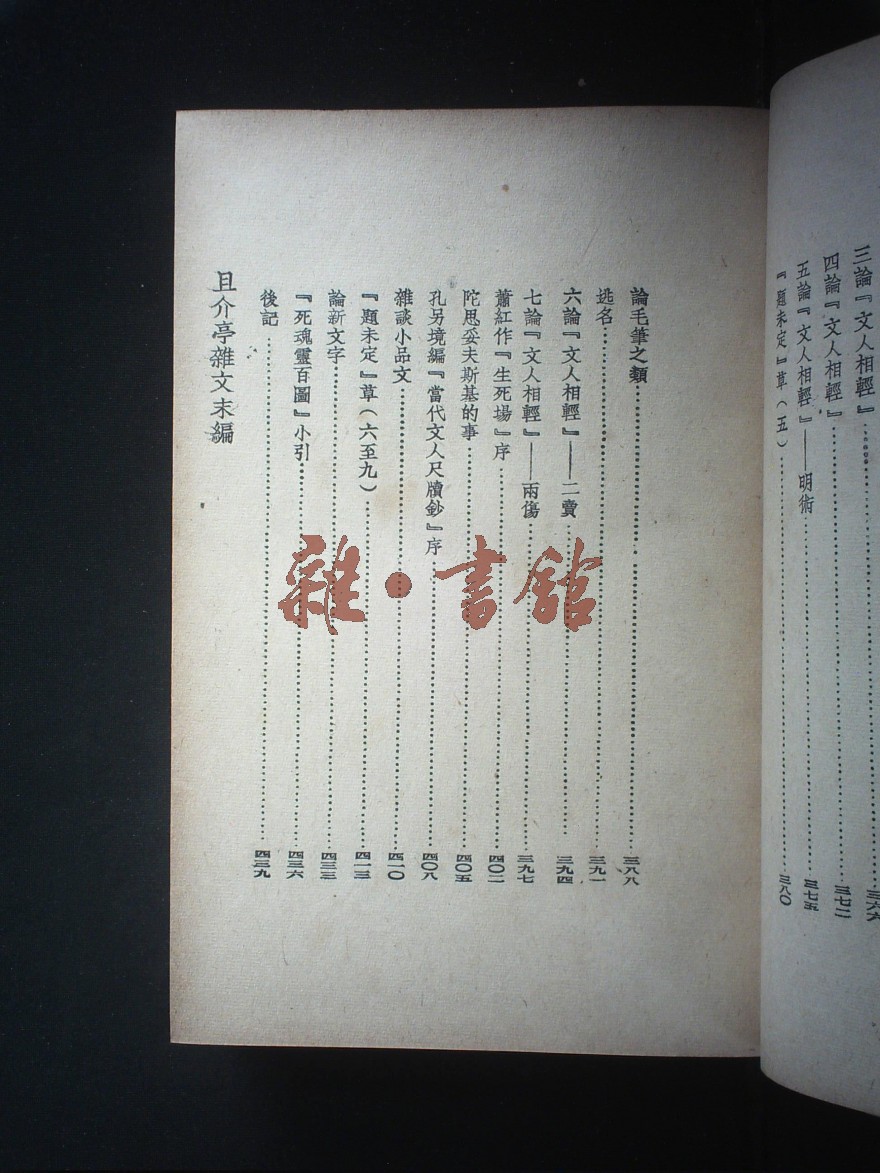 三論『文人相輕』……三六六
四論『文人相輕』……三七二
五論『文人相輕』——明術……三七五
『題未定』草（五）……三八〇
論毛筆之類……三八八
逃名……三九一
六論『文人相輕』——二賣……三九四
七論『文人相輕』——兩傷……三九七
蕭紅作『生死場』序……四〇二
陀思妥夫斯基的事……四〇五
孔另境編『當代文人尺牘鈔』序……四〇八
雜談小品文……四一〇
『題未定』草（六至九）……四一三
論新文字……四三三
『死魂靈百圖』小引……四三六
後記……四三九
且介亭雜文末編
雜·書館